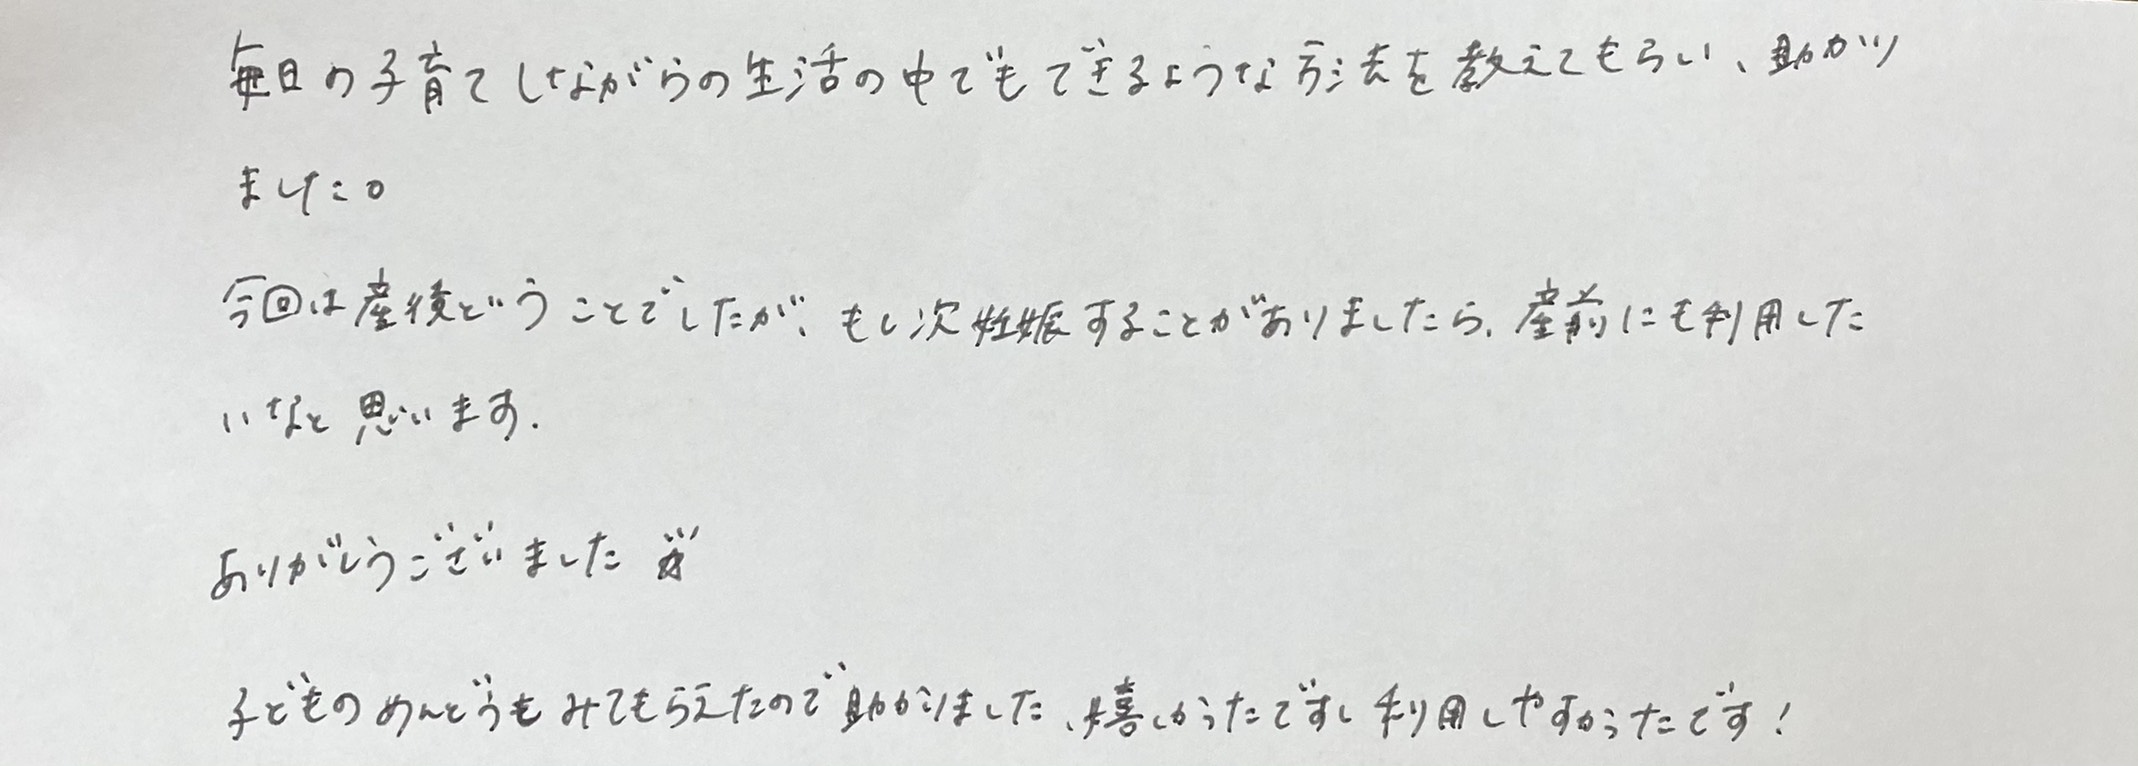 毎日の子育てしながらの生活の中でもできるような方法を教えてもらい、助かり
ました。
今回は産後ということでしたが、もし次妊娠することがありましたら、産前にも利用した
いなと思います.
ありがとうございました
子どものめんどうもみてもらえたので助かりました、嬉しかったですし利用しやすかったです!